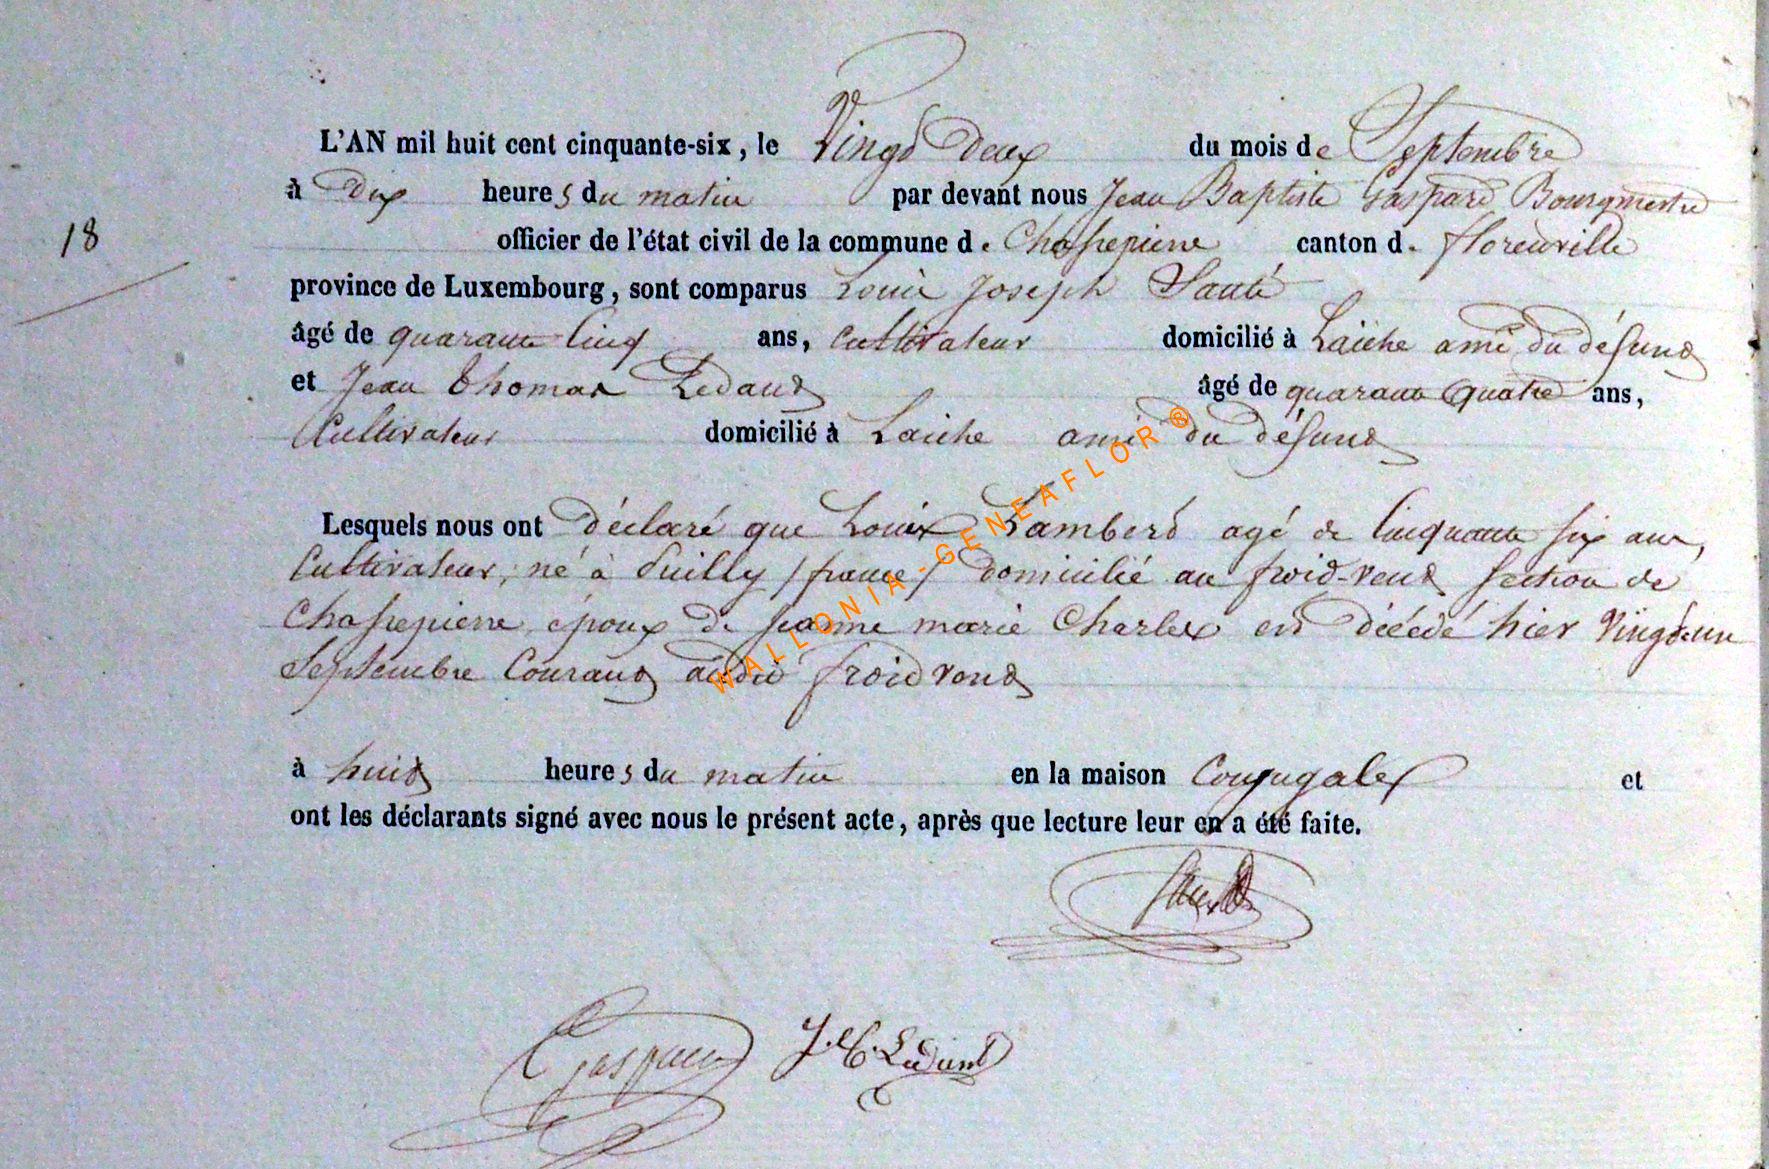 L'AN mil huit cent cinquante-six, le Vingt Deux du mois de Septembre
à Dix heures du matin par devant nous Jean Baptiste Gaspard Bourgmestre
18
officier de l'état civil de la commune de Chassepierre canton de florenville
province de Luxembourg, sont comparus Louis Joseph
âgé de quarante Cinq ans, Cultivateur domicilié à Laiche ami du défunt
et Jean Thomas Ledant âgé de quarante Quatre ans,
Cultivateur domicilié à Laiche ami du défunt
Lesquels nous ont déclaré que Louis Lambert agé de Cinquante six ans,
Cultivateur, né à Puilly /france/ domicilié au froid-vent section de
Chassepierre époux de Jeanne marie Charles est décédé hier Vingt-un
Septembre Courant audit froid vent
à huit heures du matin en la maison Conjugale et
ont les déclarants signé avec nous le présent acte, après que lecture leur en a été faite.
Gaspard J. T. Ledant
WALLONIA-GENEAFLOR®